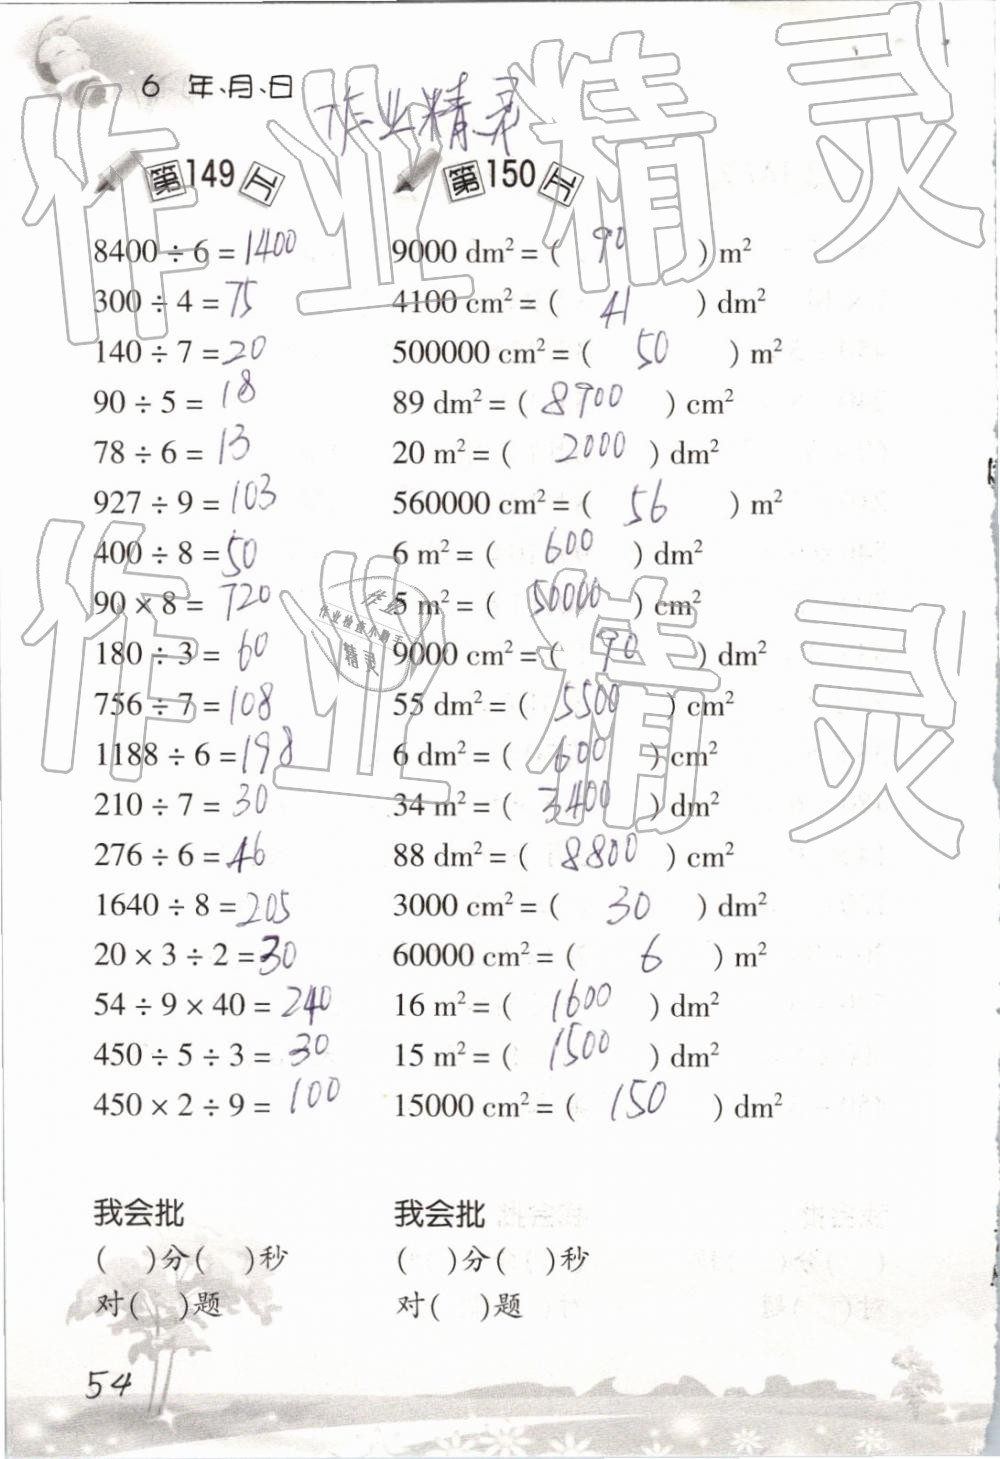 6 年、月、日
作业精灵
第149工
8400 ÷ 6 = 1400
300 ÷ 4 = 75
140 ÷ 7 = 20
90 ÷ 5 = 18
78 ÷ 6 = 13
927 ÷ 9 = 103
400 ÷ 8 = 50
90 × 8 = 720
180 ÷ 3 = 60
756 ÷ 7 = 108
1188 ÷ 6 = 198
210 ÷ 7 = 30
276 ÷ 6 = 46
1640 ÷ 8 = 205
20 × 3 ÷ 2 = 30
54 ÷ 9 × 40 = 240
450 ÷ 5 ÷ 3 = 30
450 × 2 ÷ 9 = 100
我会批
( )分( )秒
对( )题
第150工
9000 dm² = ( 90 ) m²
4100 cm² = ( 41 ) dm²
500000 cm² = ( 50 ) m²
89 dm² = ( 8900 ) cm²
20 m² = ( 2000 ) dm²
560000 cm² = ( 56 ) m²
6 m² = ( 600 ) dm²
5 m² = ( 50000 ) cm²
9000 cm² = ( 90 ) dm²
55 dm² = ( 5500 ) cm²
6 dm² = ( 600 ) cm²
34 m² = ( 3400 ) dm²
88 dm² = ( 8800 ) cm²
3000 cm² = ( 30 ) dm²
60000 cm² = ( 6 ) m²
16 m² = ( 1600 ) dm²
15 m² = ( 1500 ) dm²
15000 cm² = ( 150 ) dm²
我会批
( )分( )秒
对( )题
54
作业精灵
作业精灵
作业检查小助手
精灵